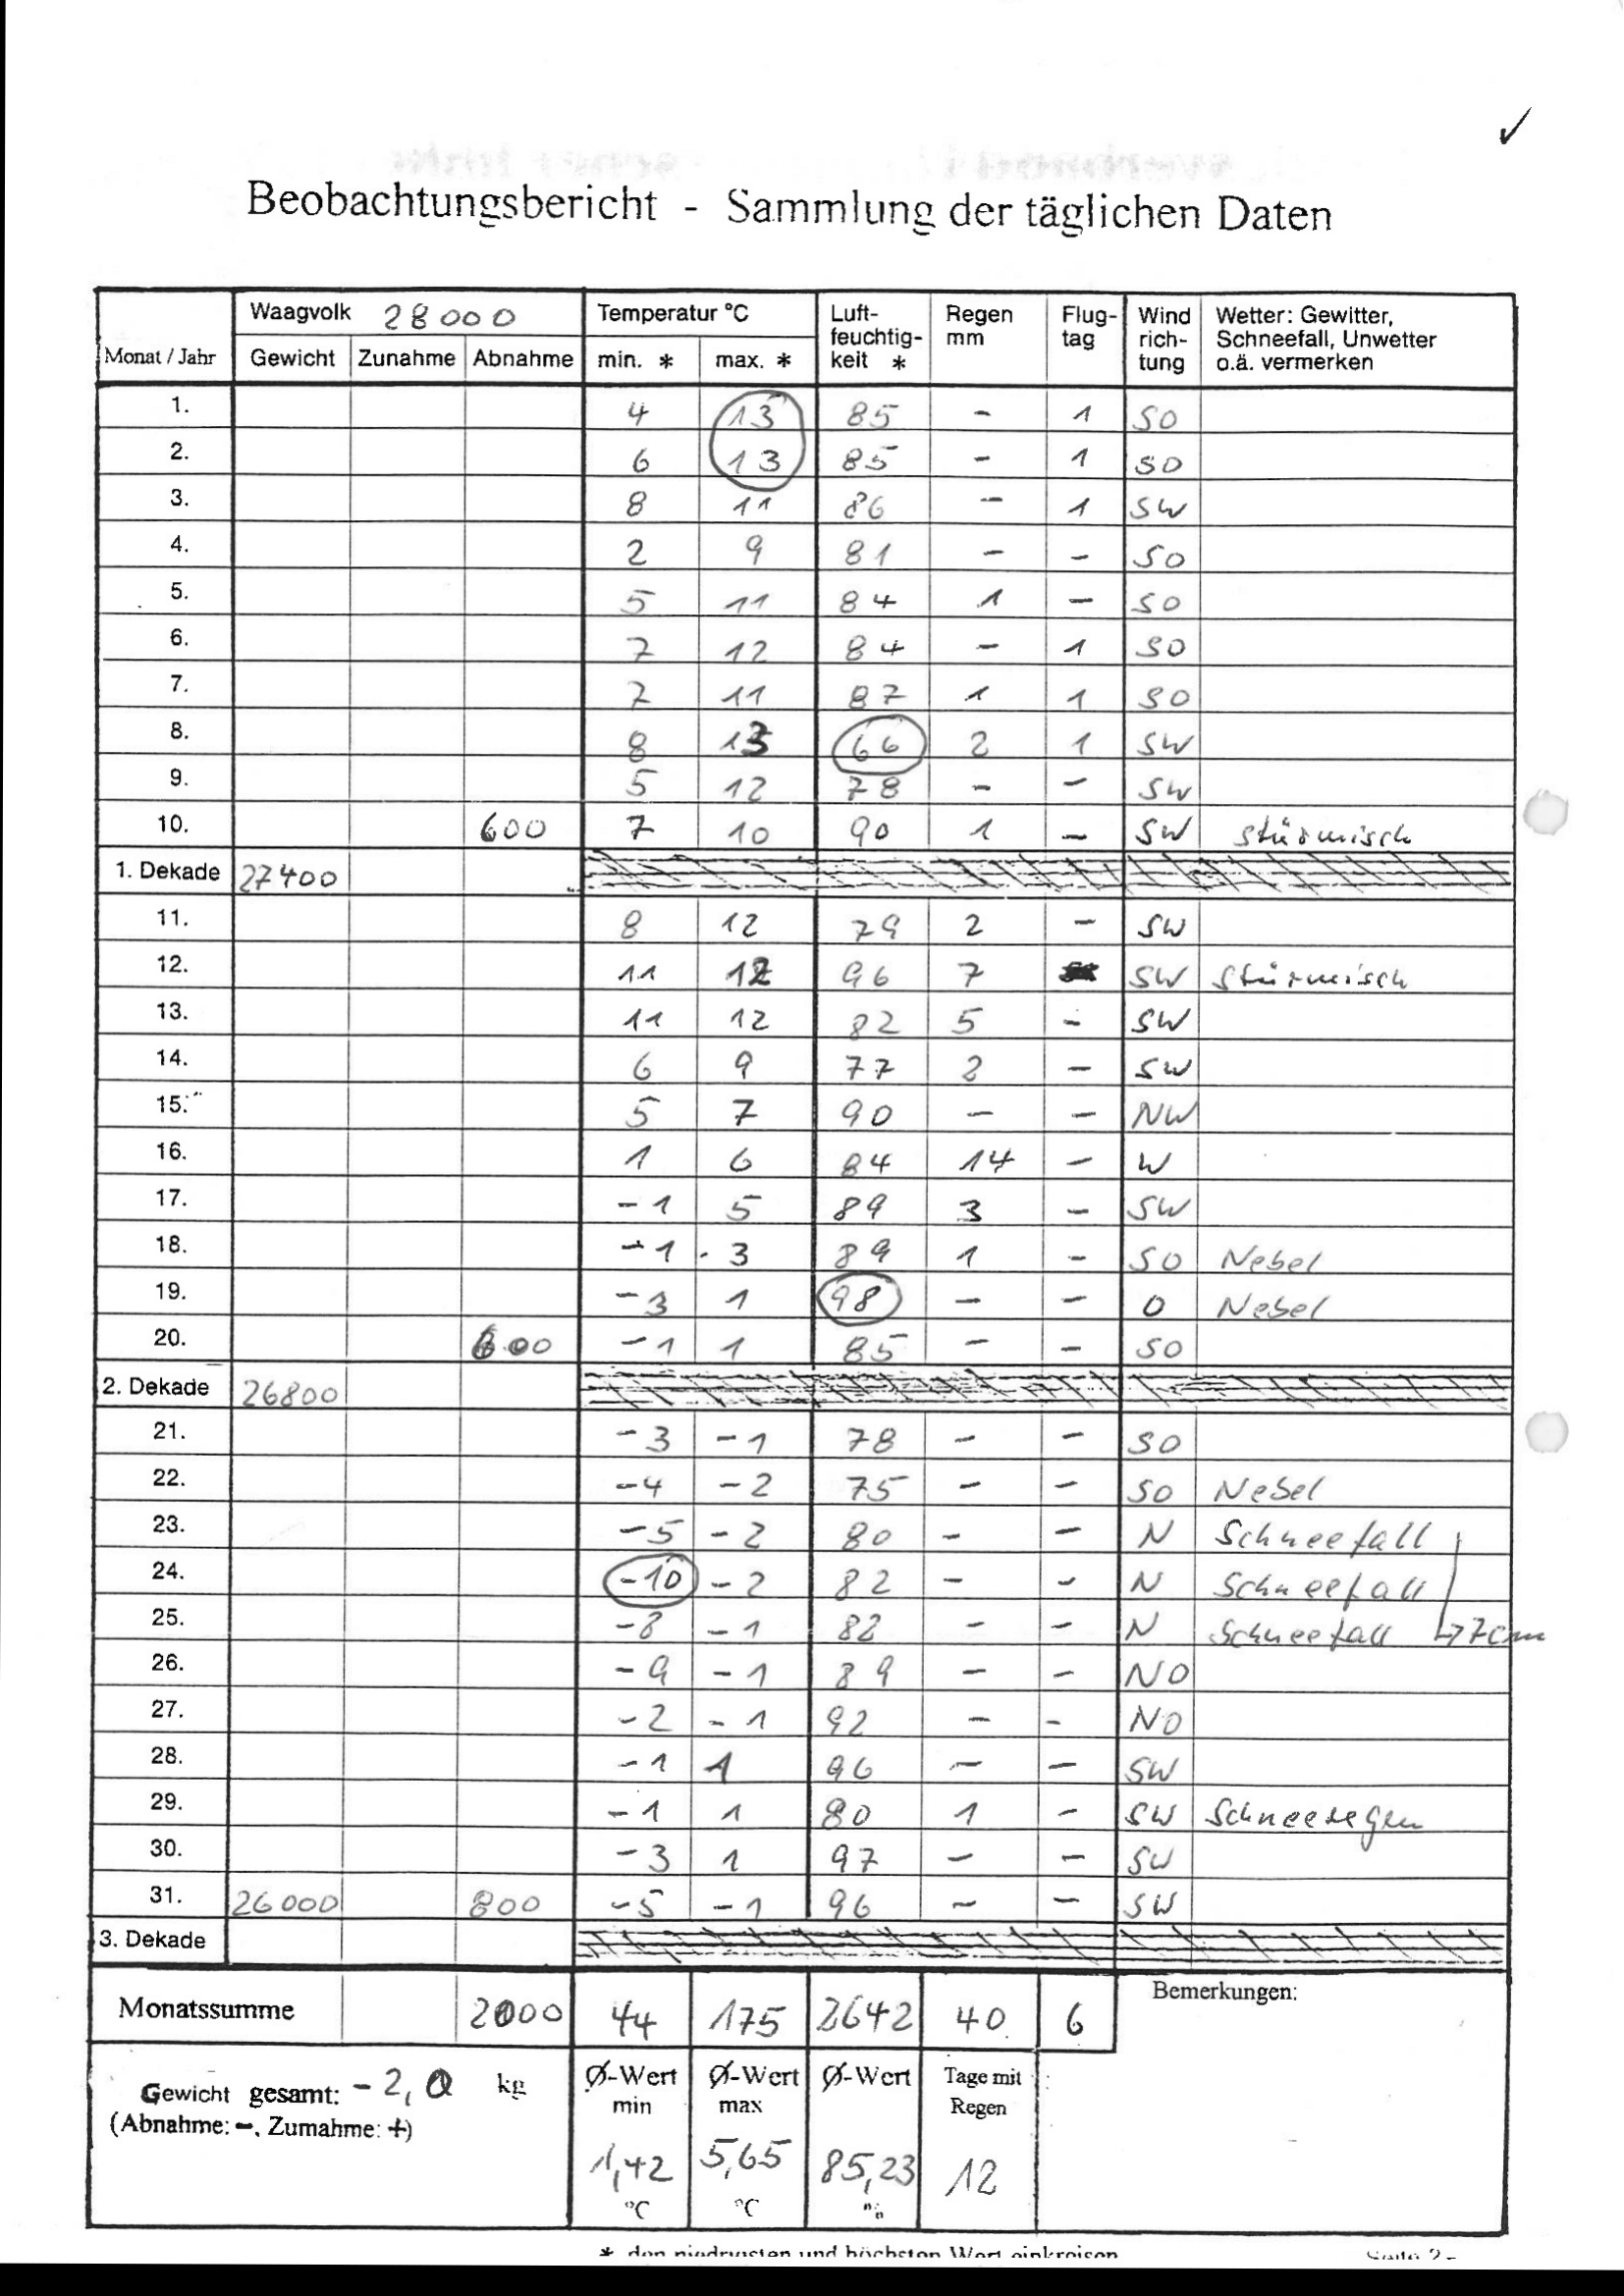 Beobachtungsbericht - Sammlung der täglichen Daten
Monat / Jahr Waagvolk 28000 Temperatur °C Luft- Regen Flug- Wind Wetter: Gewitter,
feuchtig- mm tag rich- Schneefall, Unwetter
Gewicht Zunahme Abnahme min. * max. * keit * tung o.ä. vermerken
1. 4 13 85 - 1 SO
2. 6 13 85 - 1 SO
3. 8 11 86 - 1 SW
4. 2 9 81 - - SO
5. 5 11 84 1 - SO
6. 7 12 84 - 1 SO
7. 7 11 87 1 1 SO
8. 8 13 66 2 1 SW
9. 5 12 78 - - SW
10. 600 7 10 90 1 - SW stürmisch
1. Dekade 27400
11. 8 12 79 2 - SW
12. 11 12 96 7 SW stürmisch
13. 11 12 82 5 - SW
14. 6 9 77 2 - SW
15. 5 7 90 - - NW
16. 1 6 84 14 - W
17. -1 5 89 3 - SW
18. -1 3 89 1 - SO Nebel
19. -3 1 98 - - O Nebel
20. 600 -1 1 85 - - SO
2. Dekade 26800
21. -3 -1 78 - - SO
22. -4 -2 75 - - SO Nebel
23. -5 -2 80 - - N Schneefall
24. -10 -2 82 - - N Schneefall
25. -8 -1 82 - - N Schneefall ↳ 7cm
26. -9 -1 89 - - NO
27. -2 -1 92 - - NO
28. -1 1 96 - - SW
29. -1 1 80 1 - SW Schneeregen
30. -3 1 97 - - SW
31. 26000 800 -5 -1 96 - - SW
3. Dekade
Monatssumme 2000 44 175 2642 40 6 Bemerkungen:
Gewicht gesamt: -2,0 kg Ø-Wert Ø-Wert Ø-Wert Tage mit
(Abnahme: -, Zumahme: +) min max Regen
1,42 5,65 85,23 12
°C °C
* den niedrigsten und höchsten Wert einkreisen